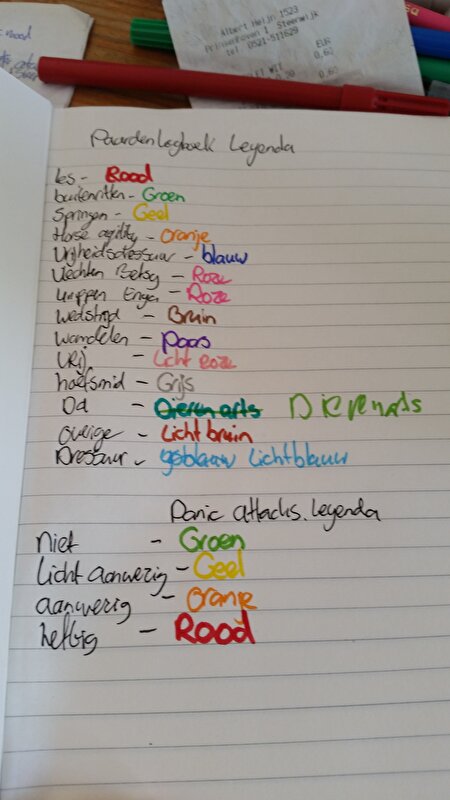 Albert Heijn 1523
tel 0521-511629
EUR
0,62
Paardenlogboek Legenda
les - Rood
buitenritten - Groen
Springen - Geel
Horse agility - Oranje
Vrijheidsdressuur - blauw
Vlechten Betsy - Roze
Knippen Enger - Roze
wedstrijd - Bruin
wandelen - Paas
Vrij - Licht Roze
hoefsmid - Grijs
Da - Dierenarts Dierenarts
Overige - Licht bruin
Dressuur - geblauw lichtblauw
Panic attacks. legenda
niet - Groen
licht aanwezig - Geel
aanwezig - Oranje
heftig - Rood